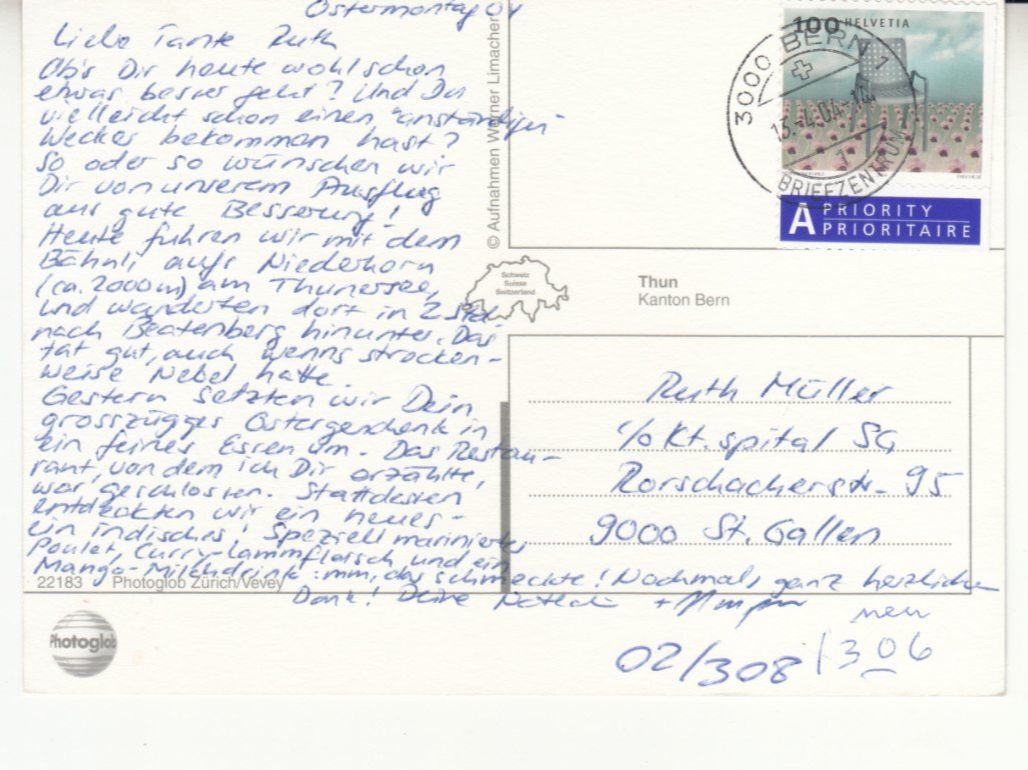 Ostermontag 04
Liebe Tante Ruth
Ob's Dir heute wohl schon
etwas besser geht? Und Du
vielleicht schon einen "anständigen"
Wecker bekommen hast?
So oder so wünschen wir
Dir von unserem Ausflug
aus gute Besserung!
Heute fuhren wir mit dem
Bähnli aufs Niederhorn
(ca. 2000m) am Thunersee,
und wanderten dort in 2 Std
nach Beatenberg hinunter. Das
tat gut, auch wenns strecken-
weise Nebel hatte.
Gestern setzten wir Dein
grosszügiges Ostergeschenk in
ein feines Essen um. Das Restau-
rant, von dem ich Dir erzählte,
war geschlossen. Stattdessen
entdeckten wir ein neues -
ein indisches! Speziell mariniertes
Poulet, Curry-Lammfleisch und ein
Mango-Milchdrink: mm, das schmeckte! Nochmals ganz herzlichen
Dank! Deine +
© Aufnahmen Werner Limacher
100 HELVETIA
3000 BERN 1
13.-4.04.-
BRIEFZENTRUM
A PRIORITY
PRIORITAIRE
Schweiz
Suisse
Switzerland
Thun
Kanton Bern
Ruth Müller
c/o Kt. spital SG
Rorschacherstr. 95
9000 St. Gallen
22183 Photoglob Zürich/Vevey
Photoglob
neu
02/308 / 306